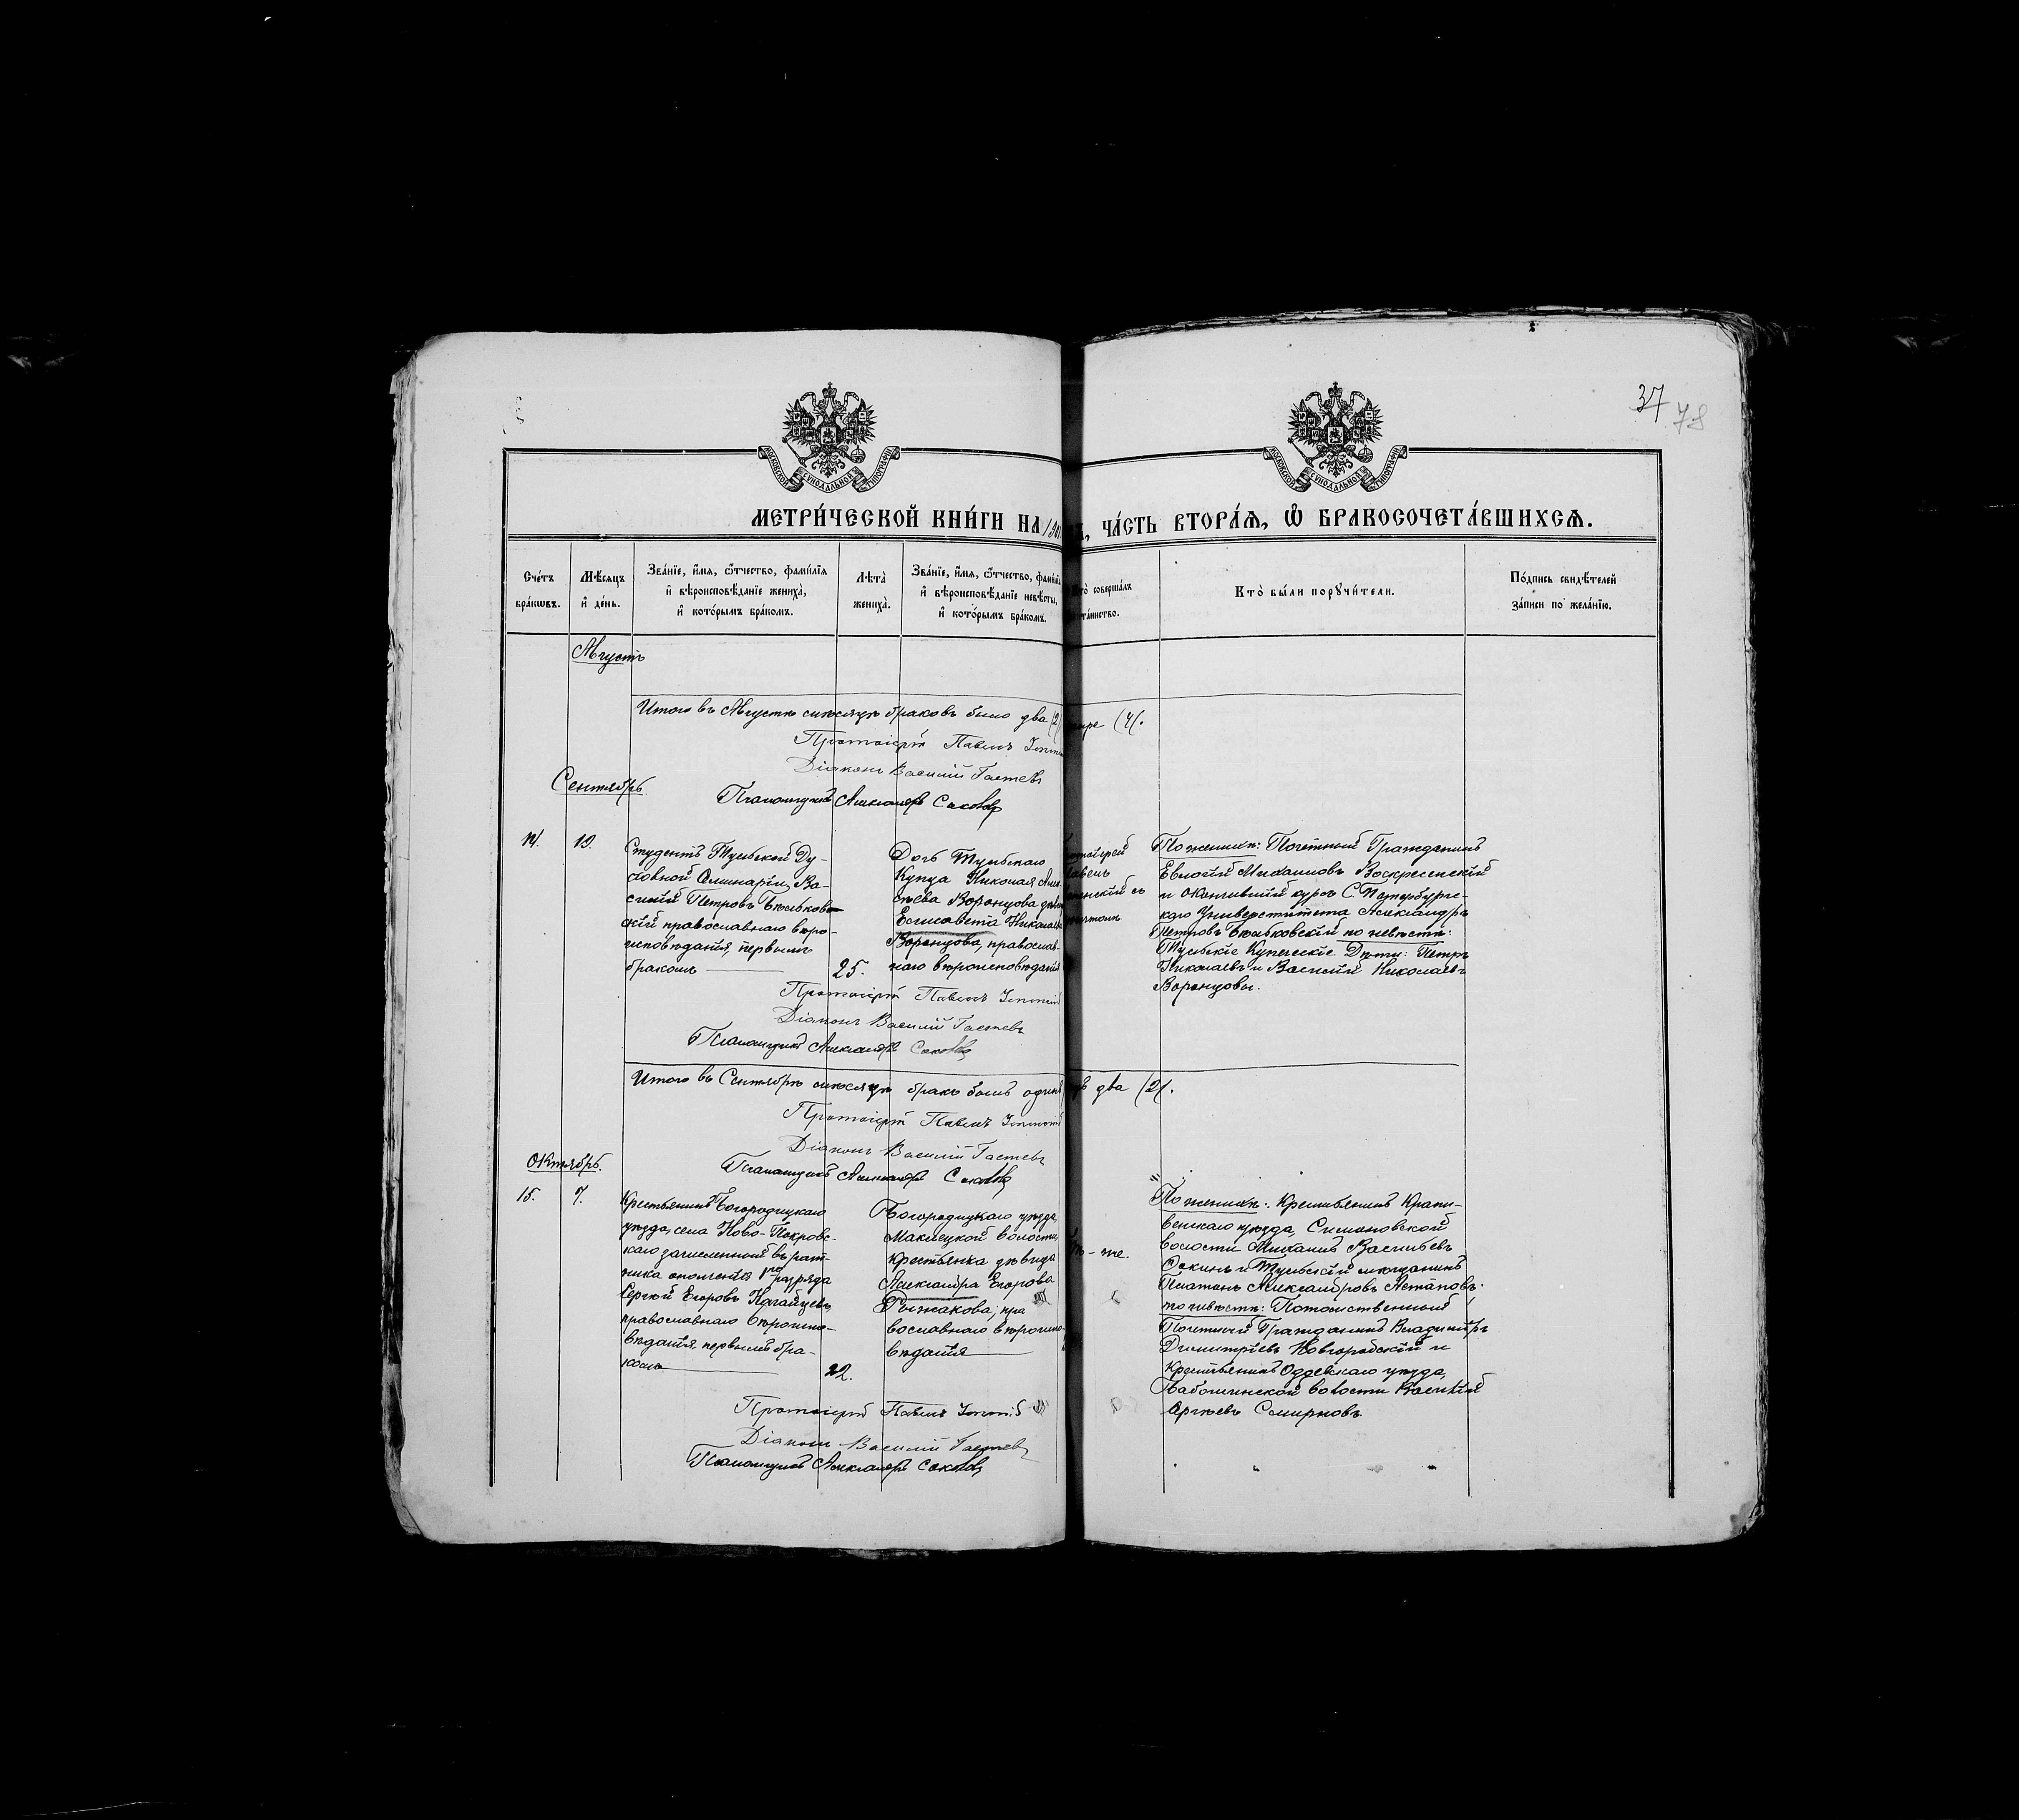 37
78
МОСКОВСКОЙ СУНОДАЛЬНОЙ ТИПОГРАФІИ
МОСКОВСКОЙ СУНОДАЛЬНОЙ ТИПОГРАФІИ
МЕТРИ́ЧЕСКОЙ КНИ́ГИ НА 190
, ЧА́СТЬ ВТОРА́Я, Ѽ БРАКОСОЧЕТА́ВШИХСЯ.
Сче́тъ бра́кѡвъ.
Мѣ́сяцъ и҆ де́нь.
Зва́нїе, и҆́мѧ, ѻ҆́тчество, фами́лїѧ
и҆ вѣроисповѣ́данїе жениха̀,
и҆ кото́рымъ бра́комъ.
Лѣ́та̀ жениха̀.
Зва́нїе, и҆́мѧ, ѻ҆́тчество, фами́лїѧ
и҆ вѣроисповѣ́данїе невѣ́сты,
и҆ кото́рымъ бра́комъ.
совершáлъ
та́инство.
Кто̀ бы́ли порꙋчи́тели.
По́дпись свидѣ́телей
за́писи по жела́нїю.
Августъ
Итого въ Августѣ мѣсяцѣ браковъ было два (2)
тыре (4).
Протоіерей Павелъ
Діаконъ Василій Гастевъ
Сентябрь
Псаломщикъ Александръ Соколовъ
14.
Студентъ Тульской Ду-
ховной Семинаріи, Ва-
силій Петровъ Бѣльков-
скій православнаго вѣро-
исповѣданія, первымъ
бракомъ
25.
Дочь Тульскаго
Купца Николая Але-
ѣева Воронцова дѣви
Елисавета Николаев
Воронцова, православ-
наго вѣроисповѣданія
тоіерей
Павелъ
По женихѣ: Почетный Гражданинъ
Евлогій Михаиловъ Воскресенскій
и окончившій курсъ С.Петербургс-
каго Университета Александръ
Петровъ Бѣльковскій по невѣстѣ:
Тульскіе Купеческіе Дѣти: Петръ
Николаевъ и Василій Николаевъ
Воронцовы.
Протоіерей Павелъ
Діаконъ Василій Гастевъ
Псаломщикъ Александръ Соколовъ
Итого въ Сентябрѣ мѣсяцѣ бракъ былъ одинъ
два (2).
Протоіерей Павелъ
Діаконъ Василій Гастевъ
Октябрь.
Псаломщикъ Александръ Соколовъ
15.
7.
Крестьянинъ Богородицкаго
уѣзда, села Ново-Покровс-
каго зачисленный въ рат-
ника ополченія 1го разряда
Сергѣй Егоровъ
православнаго вѣроиспо-
вѣданія первымъ бра-
комъ
22.
Богородицкаго уѣзда,
Маклецкой волости,
крестьянка дѣвица
Александра Егорова
Рыжакова, пра
вославнаго вѣроиспо-
вѣданія
Тѣ-же.
По женихѣ: крестьянинъ Крапи-
венскаго уѣзда, Симоновской
волости Михаилъ Васильевъ
Окинъ и Тульскій мѣщанинъ
Платонъ Александровъ Астаповъ.
по невѣстѣ: Потомственный
Почетный Гражданинъ Владиміръ
Димитріевъ Новгородскій и
крестьянинъ Одоевскаго уѣзда,
волости Василій
Сергѣевъ Смирновъ.
Протоіерей Павелъ
Діаконъ Василій Гастевъ
Псаломщикъ Александръ Соколовъ